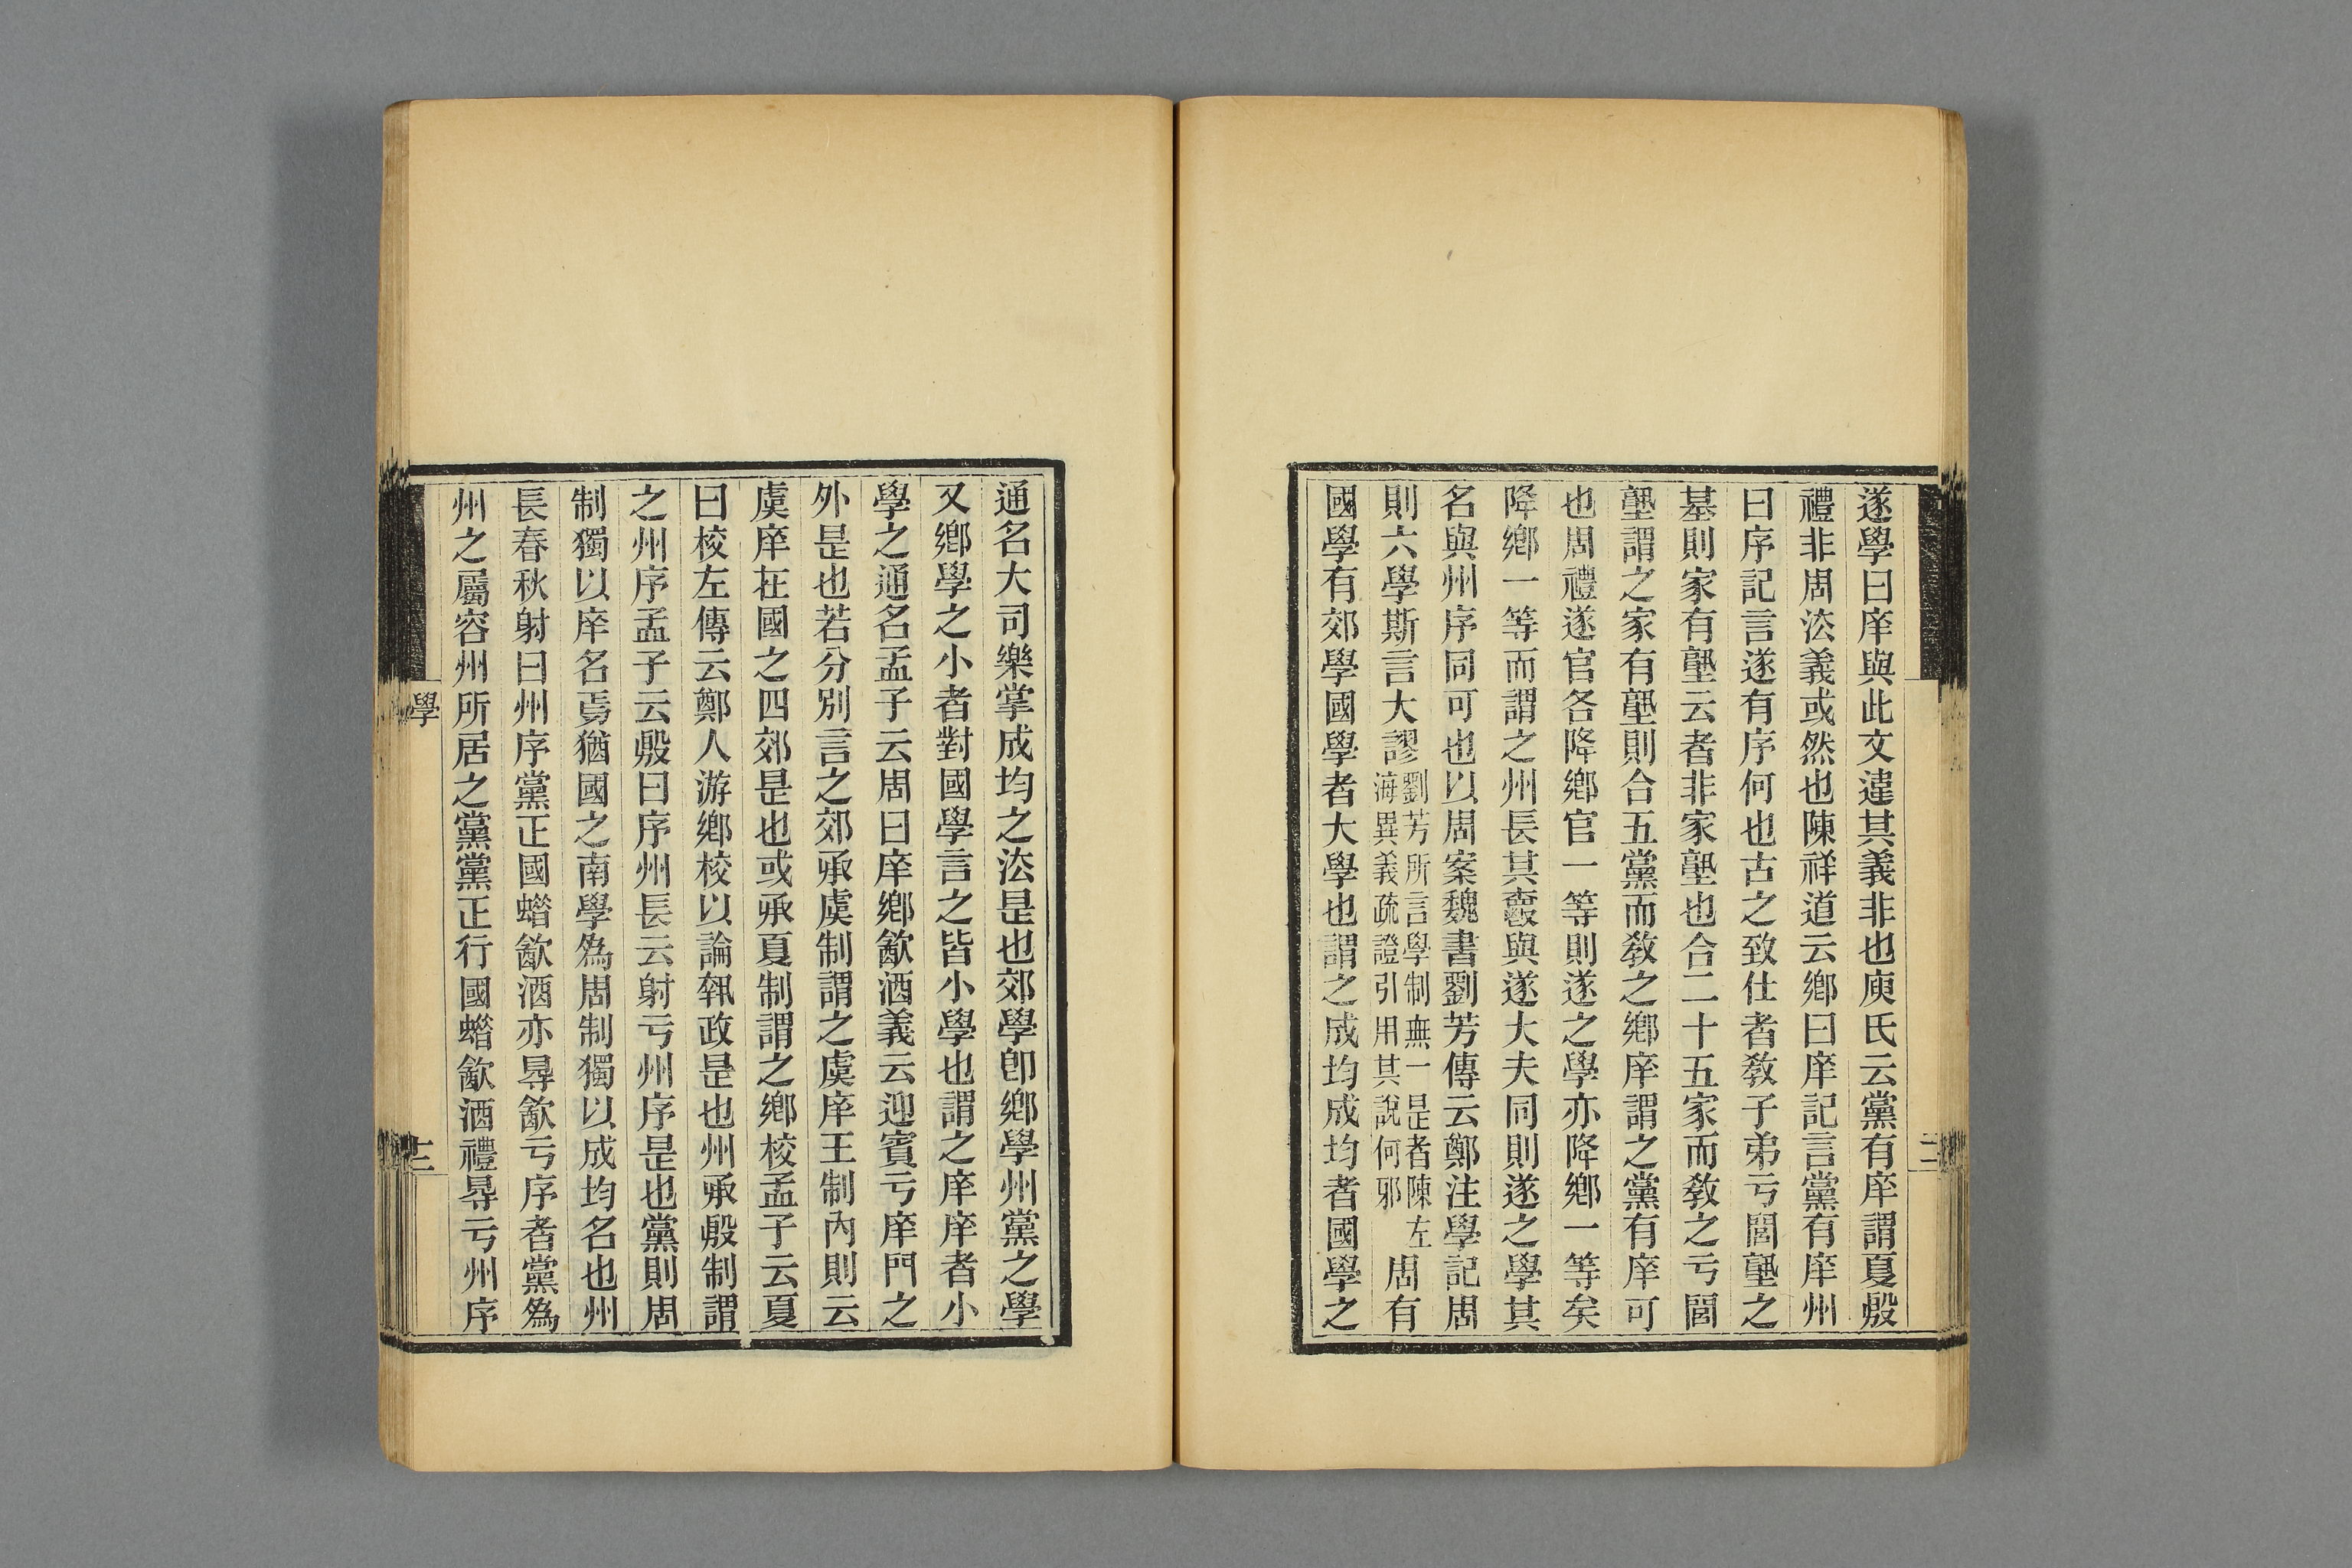 遂學曰庠與此文違其義非也庾氏云黨有庠謂夏殷
禮非周法義或然也陳祥道云鄉曰庠記言黨有庠州
曰序記言遂有序何也古之致仕者教子弟亏閭塾之
基則家有塾云者非家塾也合二十五家而教之亏閭
塾謂之家有塾則合五黨而教之鄉庠謂之黨有庠可
也周禮遂官各降鄉官一等則遂之學亦降鄉一等矣
降鄉一等而謂之州長其爵與遂大夫同則遂之學其
名與州序同可也以周案魏書劉芳傳云鄭注學記周
則六學斯言大謬劉芳所言學制無一是者陳左海異義疏證引用其說何邪周有
國學有郊學國學者大學也謂之成均成均者國學之
通名大司樂掌成均之法是也郊學卽鄉學州黨之學
又鄉學之小者對國學言之皆小學也謂之庠庠者小
學之通名孟子云周曰庠鄉飮酒義云迎賓亏庠門之
外是也若分別言之郊承虞制謂之虞庠王制內則云
虞庠在國之四郊是也或承夏制謂之鄉校孟子云夏
曰校左傳云鄭人游鄉校以論執政是也州承殷制謂
之州序孟子云殷曰序州長云射亏州序是也黨則周
制獨以庠名焉猶國之南學爲周制獨以成均名也州
長春秋射曰州序黨正國蜡飮酒亦得飮亏序者黨爲
州之屬容州所居之黨黨正行國蜡飮酒禮得亏州序
學
三